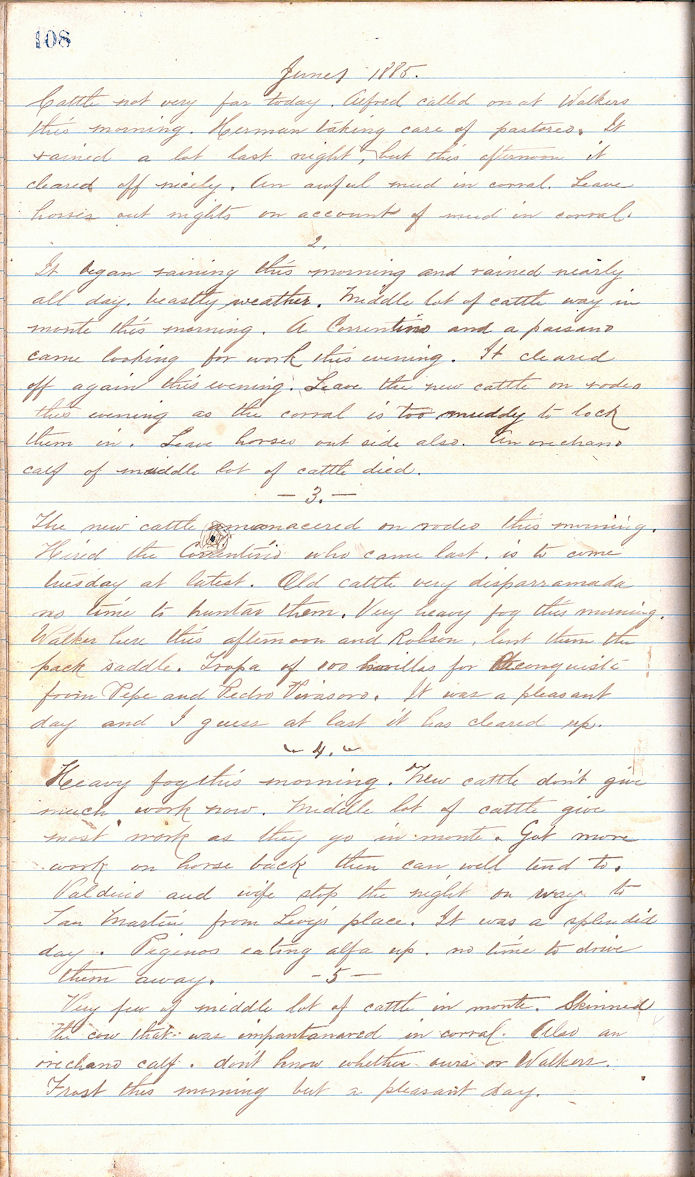 108
June 1 1885.
Cattle not very far today. Alfred called on at Walkers
this morning. Herman taking care of pastores. It
rained a lot last night, but this afternoon it
cleared off nicely. An awful mud in corral. Leave
horses out nights on account of mud in corral.
2.
It began raining this morning and rained nearly
all day. beastly weather. Middle lot of cattle way in
monte this morning. A Correntino and a paisano
came looking for work this evening. It cleared
off again this evening. Leave the new cattle on rodeo
this evening as the corral is too muddy to lock
them in. Leave horses out side also. An orechano
calf of middle lot of cattle died.
- 3. -
The new cattle on rodeo this morning.
Hired the Correntino who came last. is to come
tuesday at latest. Old cattle very disparramada
no time to huntar them. Very heavy fog this morning.
Walker here this afternoon and Robson, lent them the
pack saddle. Tropa of 100 for
from Pepe and Pedro Virasoro. It was a pleasant
day and I guess at last it has cleared up.
4.
Heavy fog this morning. New cattle don't give
much work now. Middle lot of cattle give
most work as they go in monte. Got more
work on horse back then can well tend to.
Valdino and wife stop the night on way to
San Martin from Levy's place. It was a splendid
day. Piginos eating alfa up. no time to drive
them away. - 5 -
Very few of middle lot of cattle in monte. Skinned
the cow that was impantanared in corral. Also an
orechano calf. don't know whether ours or Walkers.
Frost this morning but a pleasant day.